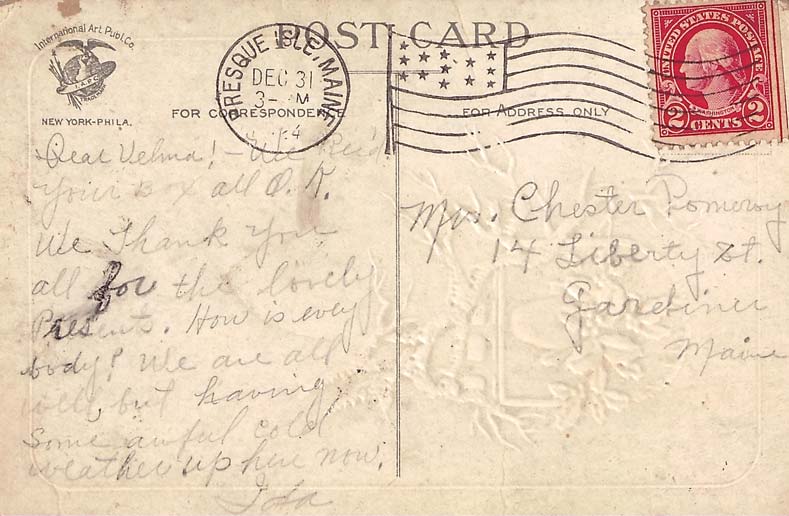 POST CARD
International Art Publ. Co.
I.A.P.C.
NEW YORK-PHILA.
PRESQUE ISLE, MAINE
DEC 31
3- M
FOR CORRESPONDENCE
FOR ADDRESS ONLY
UNITED STATES POSTAGE
WASHINGTON
2 CENTS 2
Dear Velma! - We Rec'd
your Box all O.K.
We Thank You
all for the lovely
Presents. How is every
body? We are all
well, but having
Some awful cold
weather up here now.
Ida
Mrs. Chester Pomeroy
14 Liberty St.
Gardiner
Maine